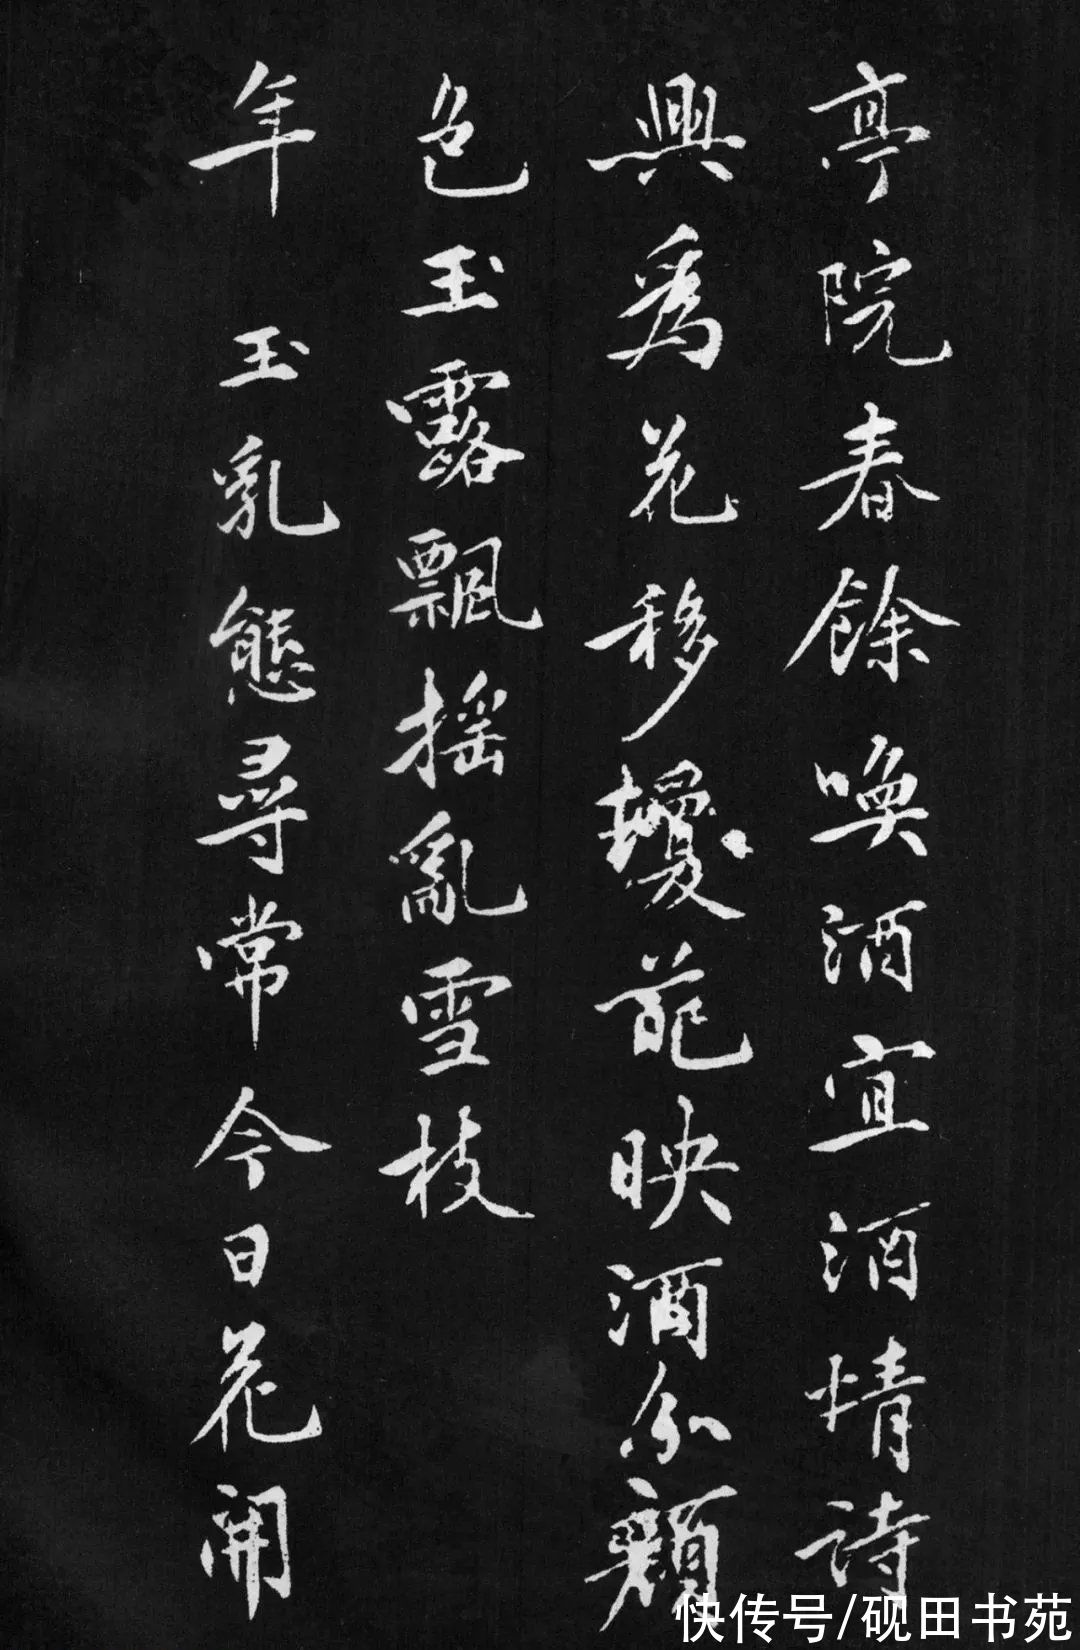 亭院春餘喚酒宜酒情詩
興為花移攙花映酒分顏
色玉露飄搖亂雪枝
年 玉乳態尋常今日花開
快传号/砚田书苑